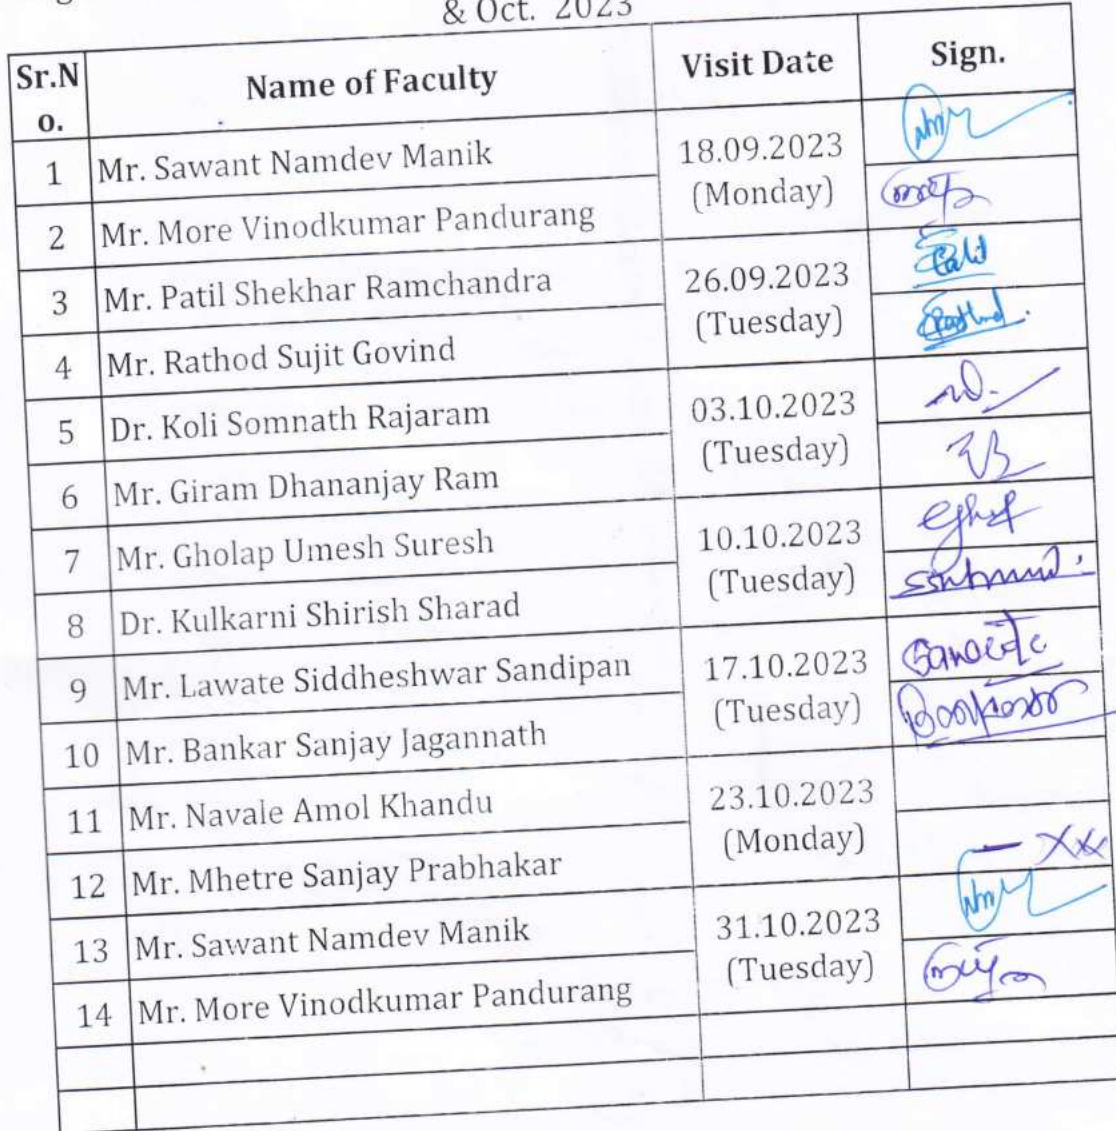 & Oct. 2023
Sr.N
o.
Name of Faculty
Visit Date
Sign.
1 Mr. Sawant Namdev Manik
18.09.2023
(Monday)
2 Mr. More Vinodkumar Pandurang
3 Mr. Patil Shekhar Ramchandra
26.09.2023
(Tuesday)
4 Mr. Rathod Sujit Govind
5 Dr. Koli Somnath Rajaram
03.10.2023
(Tuesday)
6 Mr. Giram Dhananjay Ram
7 Mr. Gholap Umesh Suresh
10.10.2023
(Tuesday)
8 Dr. Kulkarni Shirish Sharad
9 Mr. Lawate Siddheshwar Sandipan
17.10.2023
(Tuesday)
10 Mr. Bankar Sanjay Jagannath
11 Mr. Navale Amol Khandu
23.10.2023
(Monday)
12 Mr. Mhetre Sanjay Prabhakar
13 Mr. Sawant Namdev Manik
31.10.2023
(Tuesday)
14 Mr. More Vinodkumar Pandurang